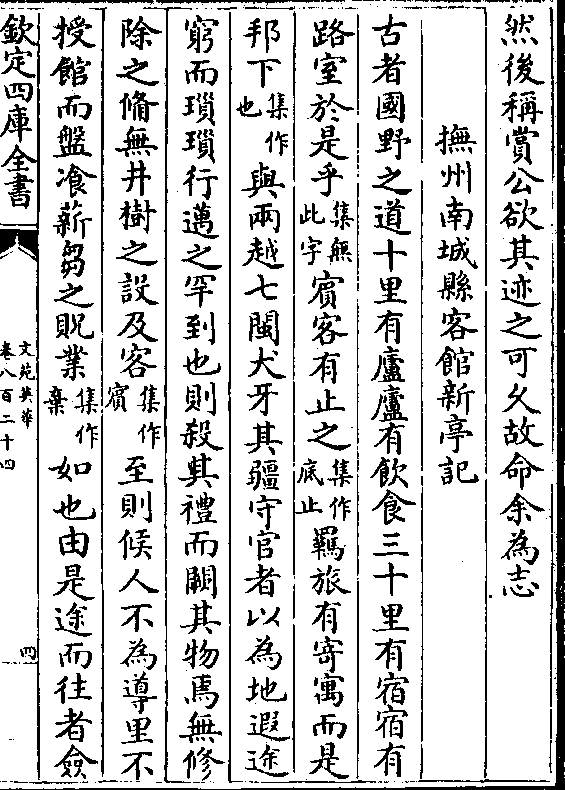 然後稱賞公欲其迹之可久故命余為志
撫州南城縣客館新亭記
古者國野之道十里有廬廬有飲食三十里有宿宿有
路室於是乎集無此字賔客有止之集作底止羈旅有寄寓而是
邦下集作也與兩越七閩犬牙其疆守官者以為地遐途
窮而瑣瑣行邁之罕到也則殺其禮而闕其物焉無修
除之備無井樹之設及客集作賔至則候人不為導里不
授館而盤飧薪芻之貺業集作棄如也由是途而往者僉
欽定四庫全書
文苑英華
卷八百二十四
四